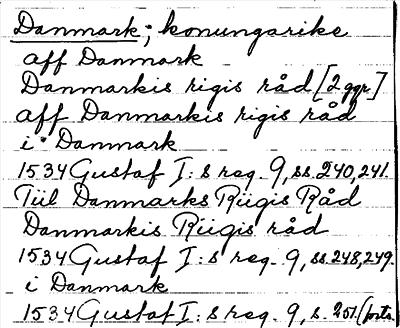 Danmark; konungarike
aff Danmark
Danmarkis rigis råd [2 ggr]
aff Danmarkis rigis råd
i Danmark
1534 Gustaf I:s reg. 9, ss. 240, 241.
Till Danmarks Riigis Råd
Danmarkis Riigis råd
1534 Gustaf I:s reg. 9, ss. 248, 249.
i Danmark
1534 Gustaf I:s reg. 9, s. 251. (forts.